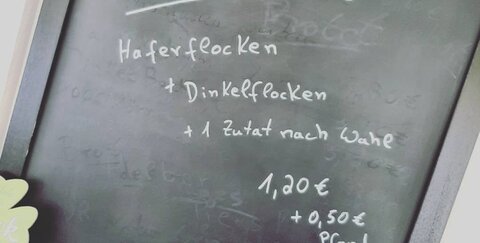 Haferflocken
+ Dinkelflocken
+ 1 Zutat nach Wahl
1,20 €
+ 0,50 €
Pfand